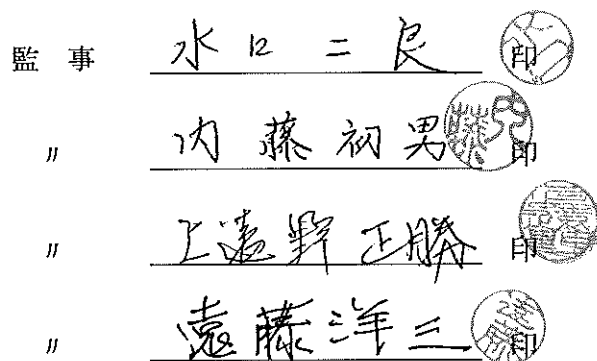 監事 水口二良 印
〃 内藤初男 印
〃 上遠野正勝 印
〃 遠藤洋三 印